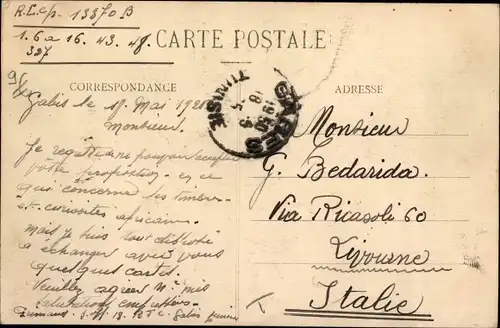 R.E.c/p. 13370 B
1.6 a 16. 43. 48.
327
CARTE POSTALE
CORRESPONDANCE
ADRESSE
GABÈS
TUNISIE
Gabès le 18 Mai
Monsieur
Je regrette ne pouvoir accepter
votre proposition en ce
qui concerne les timbres
et curiosités africaines.
Mais je suis tout disposé
à échanger avec vous
quelques cartes.
Veuillez agréer Mr mes
salutations empressées.
Gabès Tunisie
Monsieur
G. Bedarida.
Via Ricasoli 60
Livourne
Italie